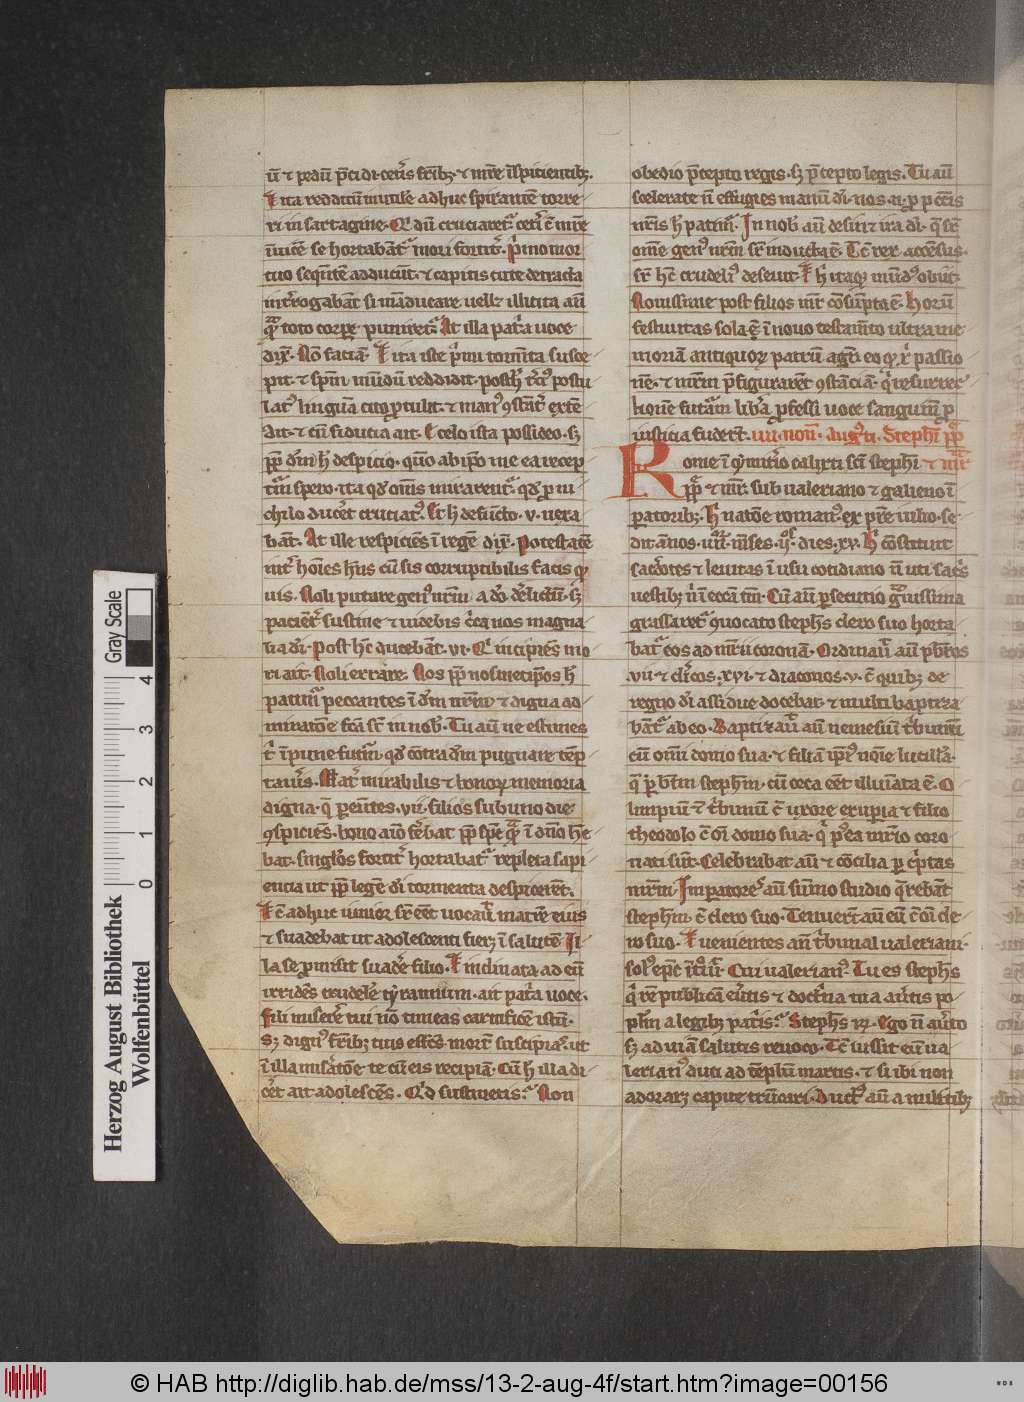 ū ⁊ pedū p̄cidi. cet'is fr̄ib; ⁊ mr̄e īspicientib;.
Et ita redditū inutilē adhuc spirantē torre
ri in sartagine. Q̄ dū cruciaret᷑ cet'i c̄ mr̄e
īuicē se hortabāt᷑ mori fortit'. P'mo mor
tuo seq̄ntē adducūt. ⁊ capitis cute detracta
int'rogabāt si māducare uellet illicita añ
q̄ toto corpe puniret᷑. At illa pat'a uoce
dix̄. Nō faciā. Et ita iste p'mi tormēta susce
pit. ⁊ sp̄m mūdū reddidit. post h' t'ci' postu
lat' linguā cito ꝓtulit. ⁊ man' ꝯstāt' extē
dit. ⁊ cū fiducia ait. E celo ista possideo. sꝫ
ꝓp̄ dm̄ h' despicio. qm̄ ab ip̄o me ea recep
tur̄ spero. ita qd̄ om̄s mirarent᷑ qd̄ ꝓ ni
chilo duc'et cruciat'. Et h' defūcto. v. uexa
bāt. At ille respiciēs ī regē dix̄. Potestatē
int' hoīes h̄ns cū sis corruptibilis facis qd'
uis. Noli putare gen' nr̄m a dō d'elictū. sꝫ
pacient' sustine ⁊ uidebis c'ca uos magna
lia dī. Post h̄c ducebāt. vi. Q' incipiēs mo
ri ait. Noli errare. Nos ꝓp̄ nosmetip̄os h'
patim᷑ peccantes ī dm̄ nr̄m ⁊ digna ad
miratōe fc̄a st̄ in nob'. Tu aū ne estimes
t' īpune futur̄. qd̄ cōtra dm̄ pugnare tēp
taueris. Mat' mirabilis ⁊ bonoꝝ memoria
digna. q̄ ꝑeūtes. vii. filios sub uno die
ꝯspiciēs. bono aīo fe'bat ꝓp̄ spē q̄ ī dn̄o h̄e
bat. singlos fortit' hortabat᷑ repleta sapi
encia ut ꝓp̄ legē dī tormenta despicerēt.
Et c̄ adhuc iunior sr̄ eēt uocauit matrē eius
⁊ suadebat ut adolescenti fieꝫ ī salutē. Il
la se ꝓmisit suad'e filio. Et inclinata ad eū
irridēs crudelē tyrannum. ait pat'a uoce.
Fili miserē mei nō timeas carnificē istū.
Sꝫ dign' fr̄ib; tuis effēs mortē suscipias. ut
ī illa misatōe te cū eis recipiā. Cū h' illa di
c'et ait adolescēs. Q'd sustinetis. Non
obedio p̄cepto regis. sꝫ p̄cepto legis. Tu aū
scelerate n̄ effugies manū dī. nos. n. ꝓ pccīs
nr̄is h' patim᷑. In nob' aū desinet ira dī. q̄ sr̄
om̄e gen' nr̄m sr̄ inducta ē. Tc̄ rex accensus.
sr̄ h̄c crudeli' deseuit. Et h' itaqꝫ mūd' obiit.
Nouissime post filios mr̄ cōsūpta ē. Horū
festiuitas sola ē ī nouo testamīto ultra me
moriā antiquoꝝ patrū agit' eo qd' xr̄i passio
nē. ⁊ mr̄m p̄figurarēt ꝯstāciā. q' resurrec
tionē futurā lib'a ꝓfessi uoce sanguinē ꝓ
iusticia fuderūt. iiii. non̄. Augusti. Stephī pp̄
Rome ī cymit'io calixti sc̄i stephī ⁊ mr̄
pp̄ ⁊ mr̄. sub ualeriano ⁊ galieno ī
ꝑatorib;. H' natōe roman' ex pr̄e iulio. se
dit annos. iiii. m̄ses. ii. dies. xv. H' cōstituit
sac'dotes ⁊ leuitas ī usu cotidiano n̄ uti sac's
uestib; n' ī eccā tm̄. Cū aū ꝑsecutio g̃uissima
grassaret᷑ ꝯuocato steph̄s clero suo horta
bat᷑ eos ad mr̄ii coronā. Ordinauit aū pbr̄os
.vii. ⁊ cl'icos. xvi. ⁊ diaconos. v. c̄ quib; de
regno dī assidue docebat. ⁊ multi baptiza
bāt᷑ ab eo. Baptizauit aū nemesiū t'bunū
cū om̄i domo sua. ⁊ filiā ip̄i' noīe lucillā.
q̄ ꝑ btm̄ stephm̄. cū ceca eēt illuīata ē. O
limpiū ⁊ t'bunū c̄ uxore exupia ⁊ filio
theodolo c̄ oī domo sua. q' p'ea mr̄io coro
nati sūt. Celebrabat aū ⁊ cōcilia ꝑ c'ptas
mr̄m. Imperatores aū sūmo studio q̄rebāt
stephm̄. c̄ clero suo. Tenuert aū eū c̄ oī cle
ro suo. Et uenientes an̄ t'bunal ualeriani.
sol' ep̄c ītuit. Cui ualerian'. Tu es steph̄s
q' rē publicā eu'tis ⁊ doct'na tua au'tis po
plm̄ a legib; pat'is. Steph̄s rñ. Ego n̄ au'to
sꝫ ad uiā salutis reuoco. Tc̄ iussit eū ua
lerian' duci ad tēplū martis. ⁊ si ibi non
adoraret capite trūcari. Duct' aū a militib;
Herzog August Bibliothek
Wolfenbüttel
Gray Scale
0 1 2 3 4
© HAB http://diglib.hab.de/mss/13-2-aug-4f/start.htm?image=00156